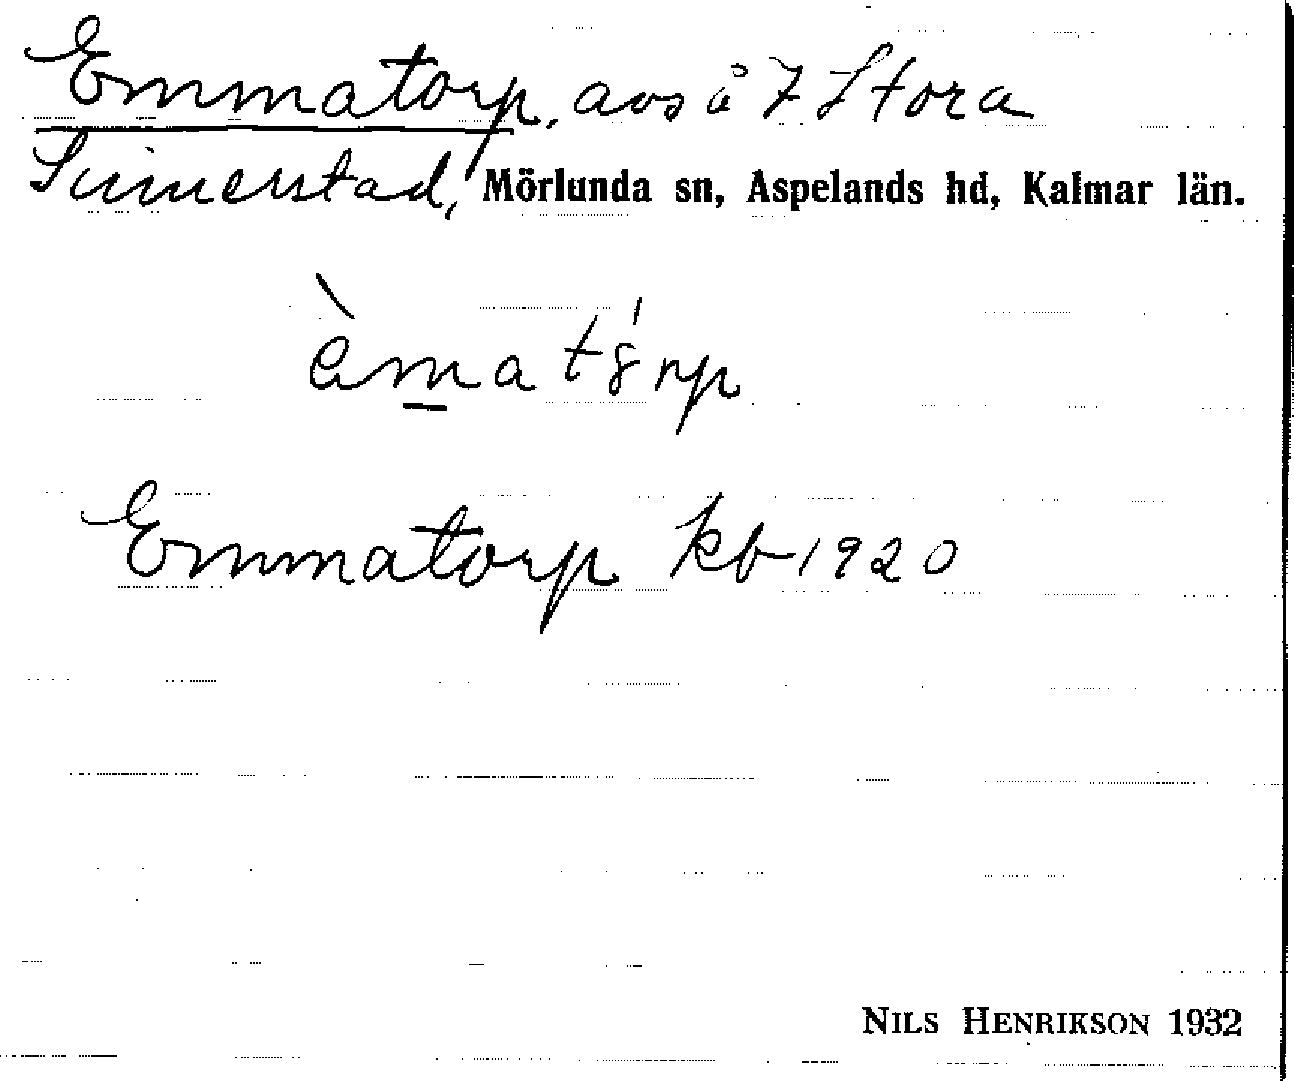 Emmatorp, avs å 7 Stora
Sinnerstad, Mörlunda sn, Aspelands hd, Kalmar län.
èm̲a t8́rp
Emmatorp kb 1920
NILS HENRIKSON 1932